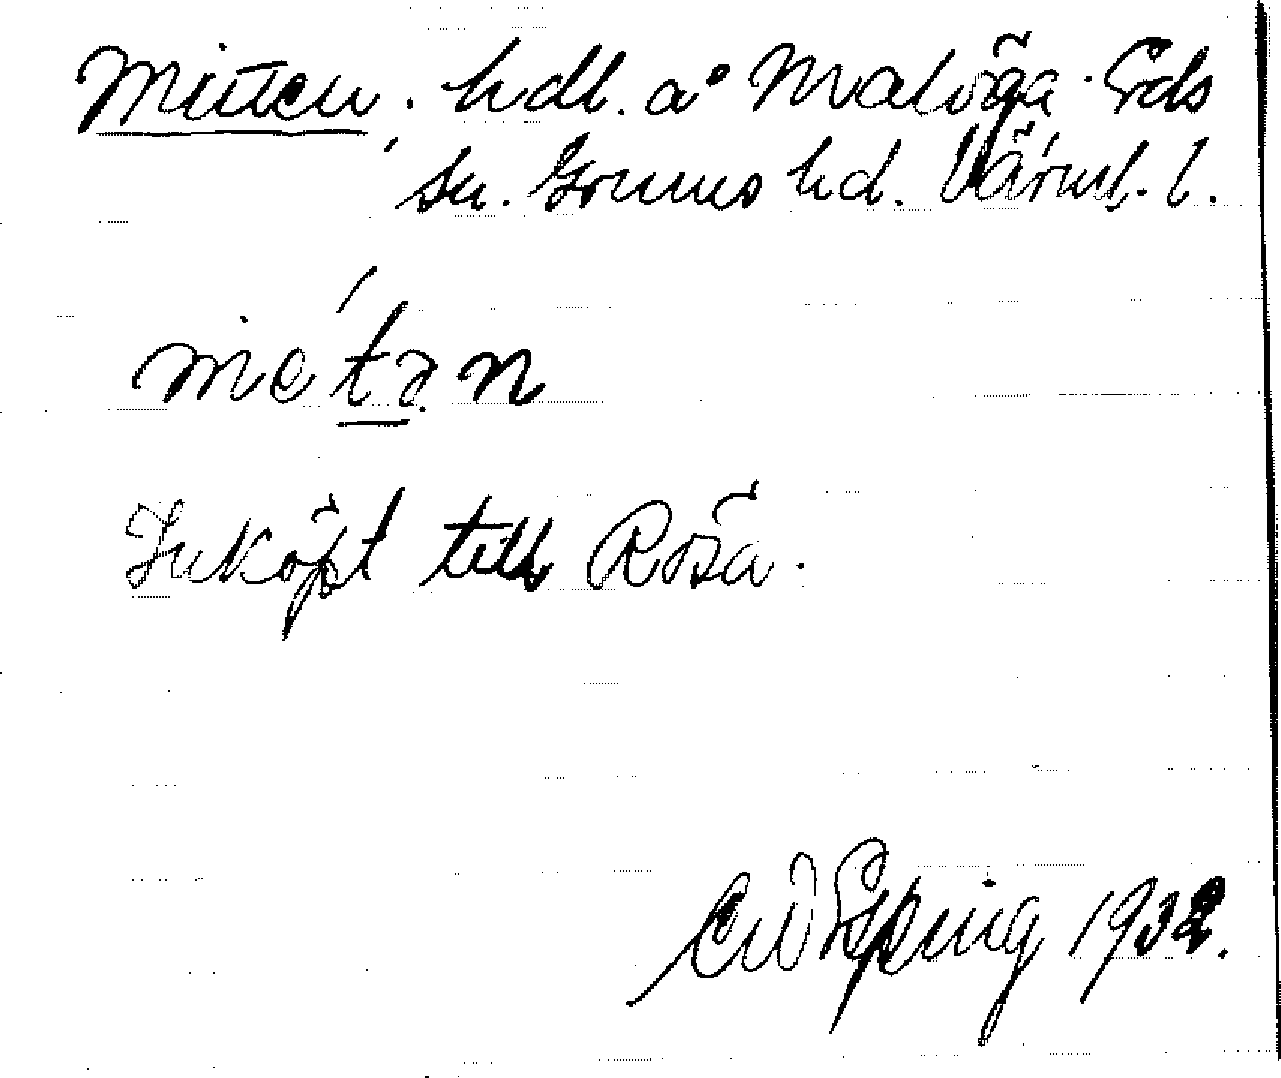 Mitten, hdl. å Malöga. Eds
sn. Grums hd. Värml. l.
mét̲a̲n
Inköpt till Röså.
1932.